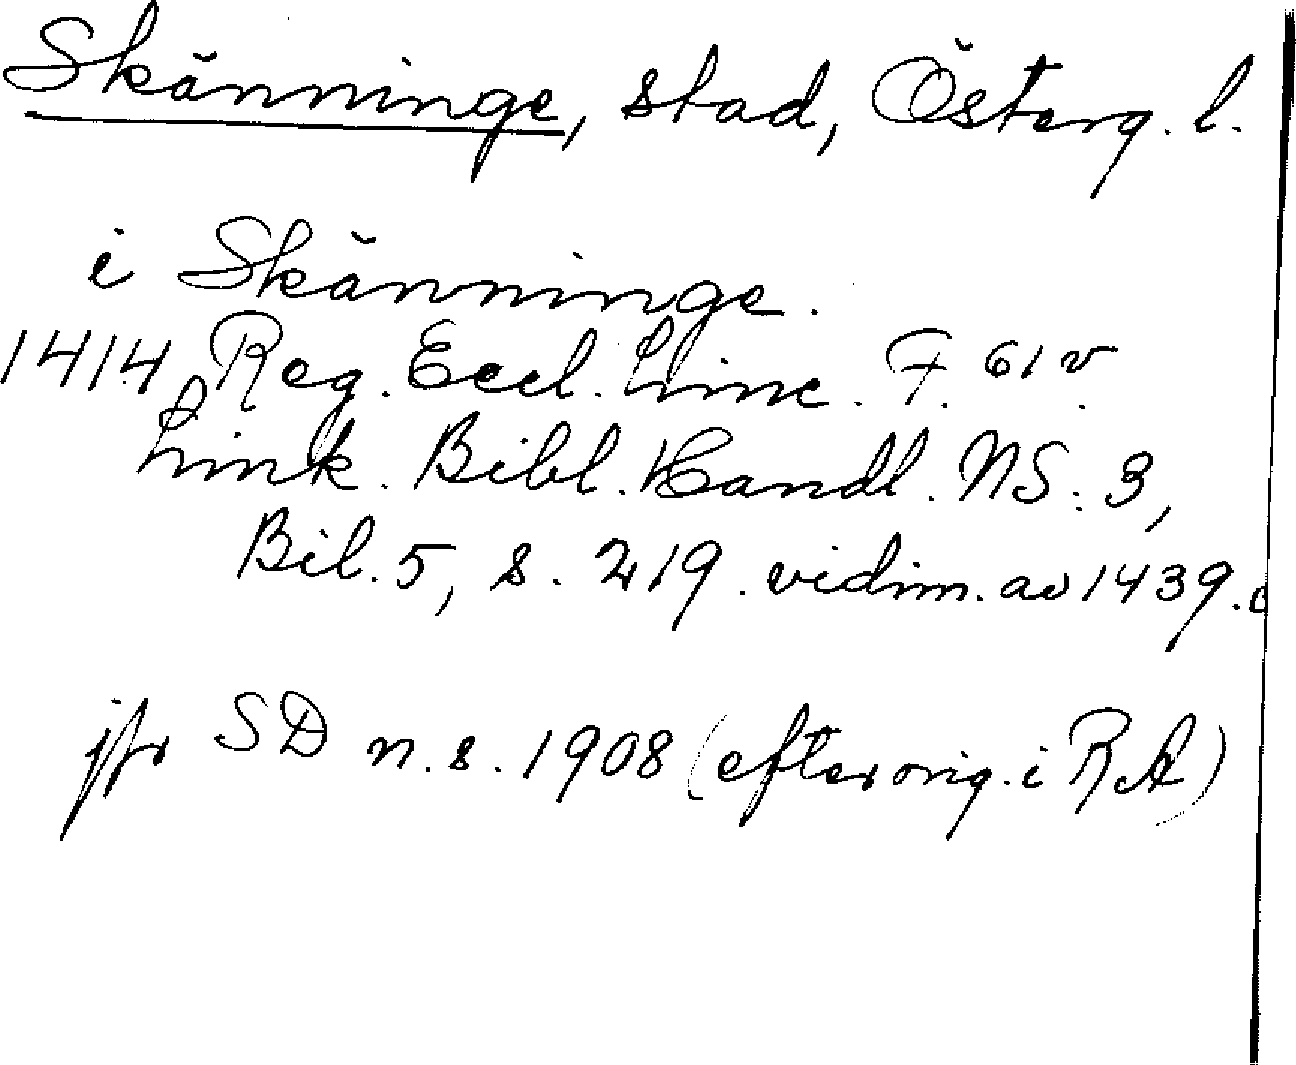 Skänninge, stad, Österg. l.
i Skänninge.
1414 Reg. Eccl. Linc. F. 61 v.
Link. Bibl. Handl. NS. 3,
Bil. 5, s. 219. vidim. av 1439.
jfr SD n. s. 1908 (efter orig. i RA)